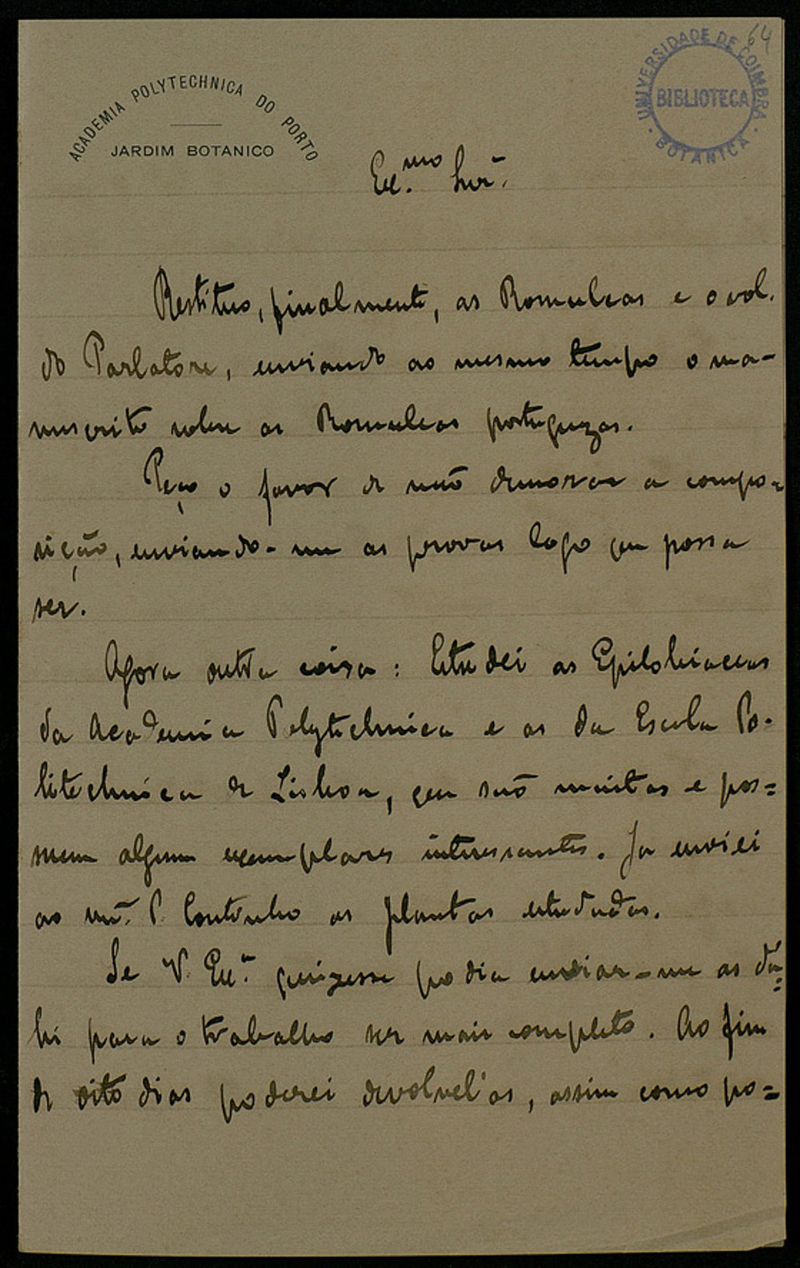 64
ACADEMIA POLYTECHNICA DO PORTO
JARDIM BOTANICO
UNIVERSIDADE DE COIMBRA
BIBLIOTECA
BOTANICA
Ex.mo Snr.
Restituo, finalmente, as Romuleas e o vol.
do Parlatore, enviando ao mesmo tempo o ma-
nuscrito sobre as Romuleas portuguezas.
Peço o favor de não demorar a compo-
sição, enviando-me as provas logo que possa
ser.
Agora outra coisa: Estudei as Epilobiaceas
da Academia Polytechnica e as da Escola Po-
litechnica de Lisboa, que são muitas e pos=
suem alguns exemplares interessantes. Ja enviei
ao snr. P. Coutinho as plantas estudadas.
Se V. Exª. quizesse podia enviar-me as da=
hi para o trabalho ser mais completo. Ao fim
de oito dias poderei devolvel'as, assim como po=